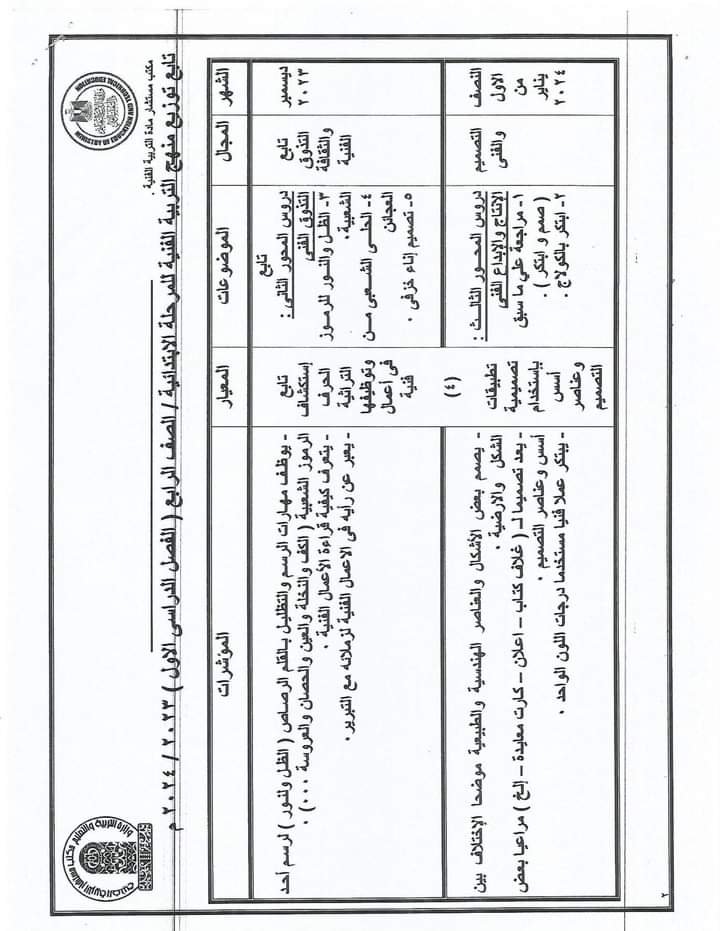 MINISTRY OF EDUCATION AND TECHNICAL EDUCATION
وزارة التربية والتعليم
مكتب مستشار مادة التربية الفنية .
تابع توزيع منهج التربية الفنية للمرحلة الابتدائية / الصف الرابع ( الفصل الدراسى الاول ) ٢٠٢٣ / ٢٠٢٤ م
الشهر
المجال
الموضوعات
المعيار
المؤشرات
ديسمبر
٢٠٢٣
تابع
التذوق
والثقافة
الفنية
تابع
دروس المحور الثانى :
التذوق الفنى
٣- الظل والنور للرموز
الشعبية .
٤- الحلى الشعبى من
العجائن
٥- تصميم إناء خزفى .
تابع
إستكشاف
الحرف
التراثية
وتوظيفها
فى أعمال
فنية
- يوظف مهارات الرسم والتظليل بالقلم الرصاص ( الظل ولنور ) لرسم أحد
الرموز الشعبية ( الكف والنخلة والعين والحصان والعروسة ٠٠٠) .
- يتعرف كيفية قراءة الأعمال الفنية .
- يعبر عن رأيه فى الاعمال الفنية لزملائه مع التبرير .
النصف
الاول
من
يناير
٢٠٢٤
التصميم
والفنى
دروس المحور الثالث :
الإنتاج والإبداع الفنى
١- مراجعة علي ما سبق
( صمم و ابتكر ) .
٢- ابتكر بالكولاج .
(٤)
تطبيقات
تصميمية
بإستخدام
أسس
وعناصر
التصميم
- يصمم بعض الأشكال والعناصر الهندسية والطبيعية موضحا الإختلاف بين
الشكل والارضية .
- يعد تصميما لـ ( غلاف كتاب – اعلان – كارت معايدة – إلخ ) مراعيا بعض
أسس وعناصر التصميم .
- يبتكر عملا فنيا مستخدما درجات اللون الواحد .
٢